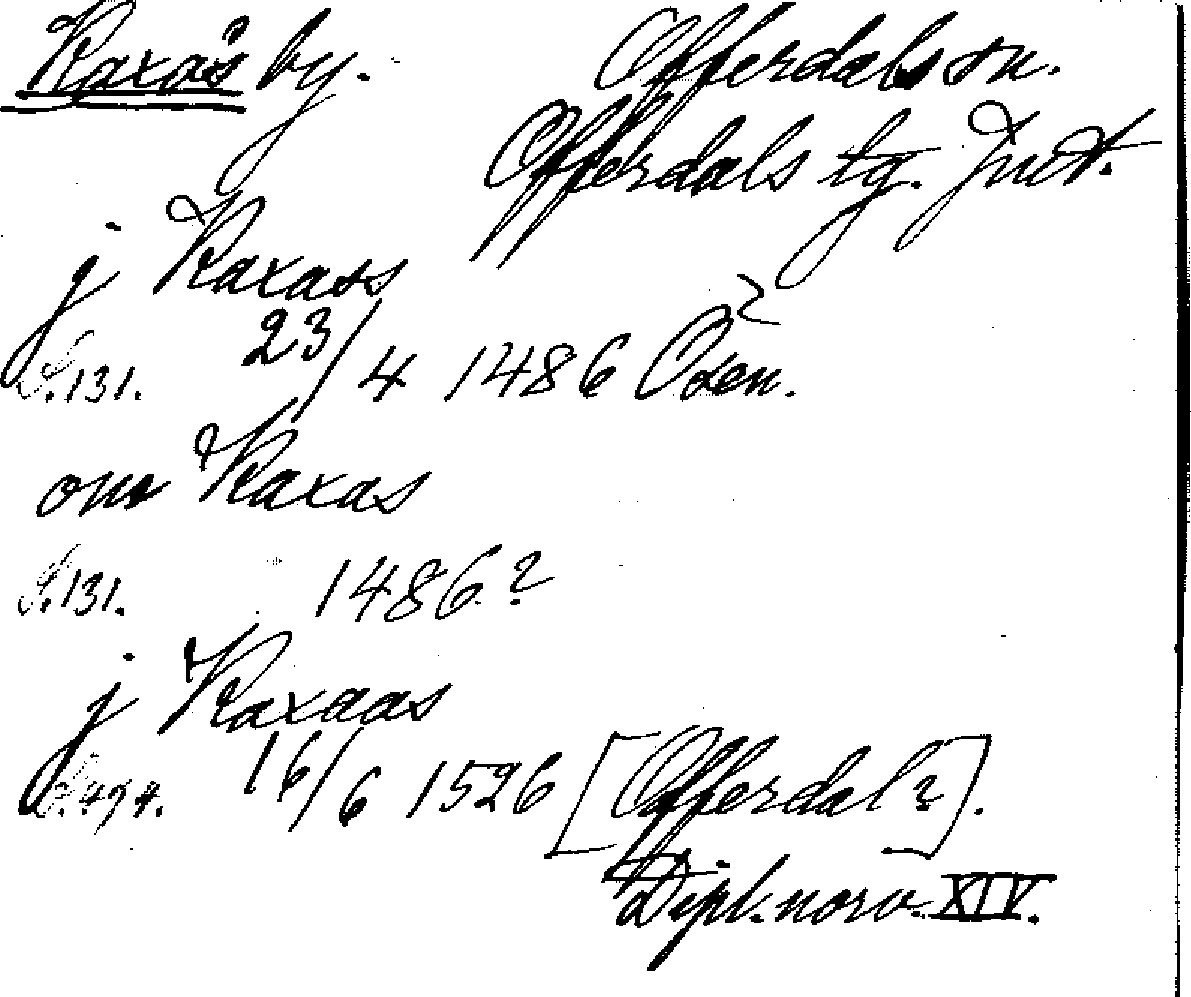 Kaxås by. Offerdals sn.
Offerdals tg. Jmt.
j Kaxass
S. 131. 23/4 1486 Oxen.?
om Kaxas
S. 131. 1486?
j Kaxaas
S. 474. 16/6 1526 [Offerdal?].
Dipl. norv. XIV.